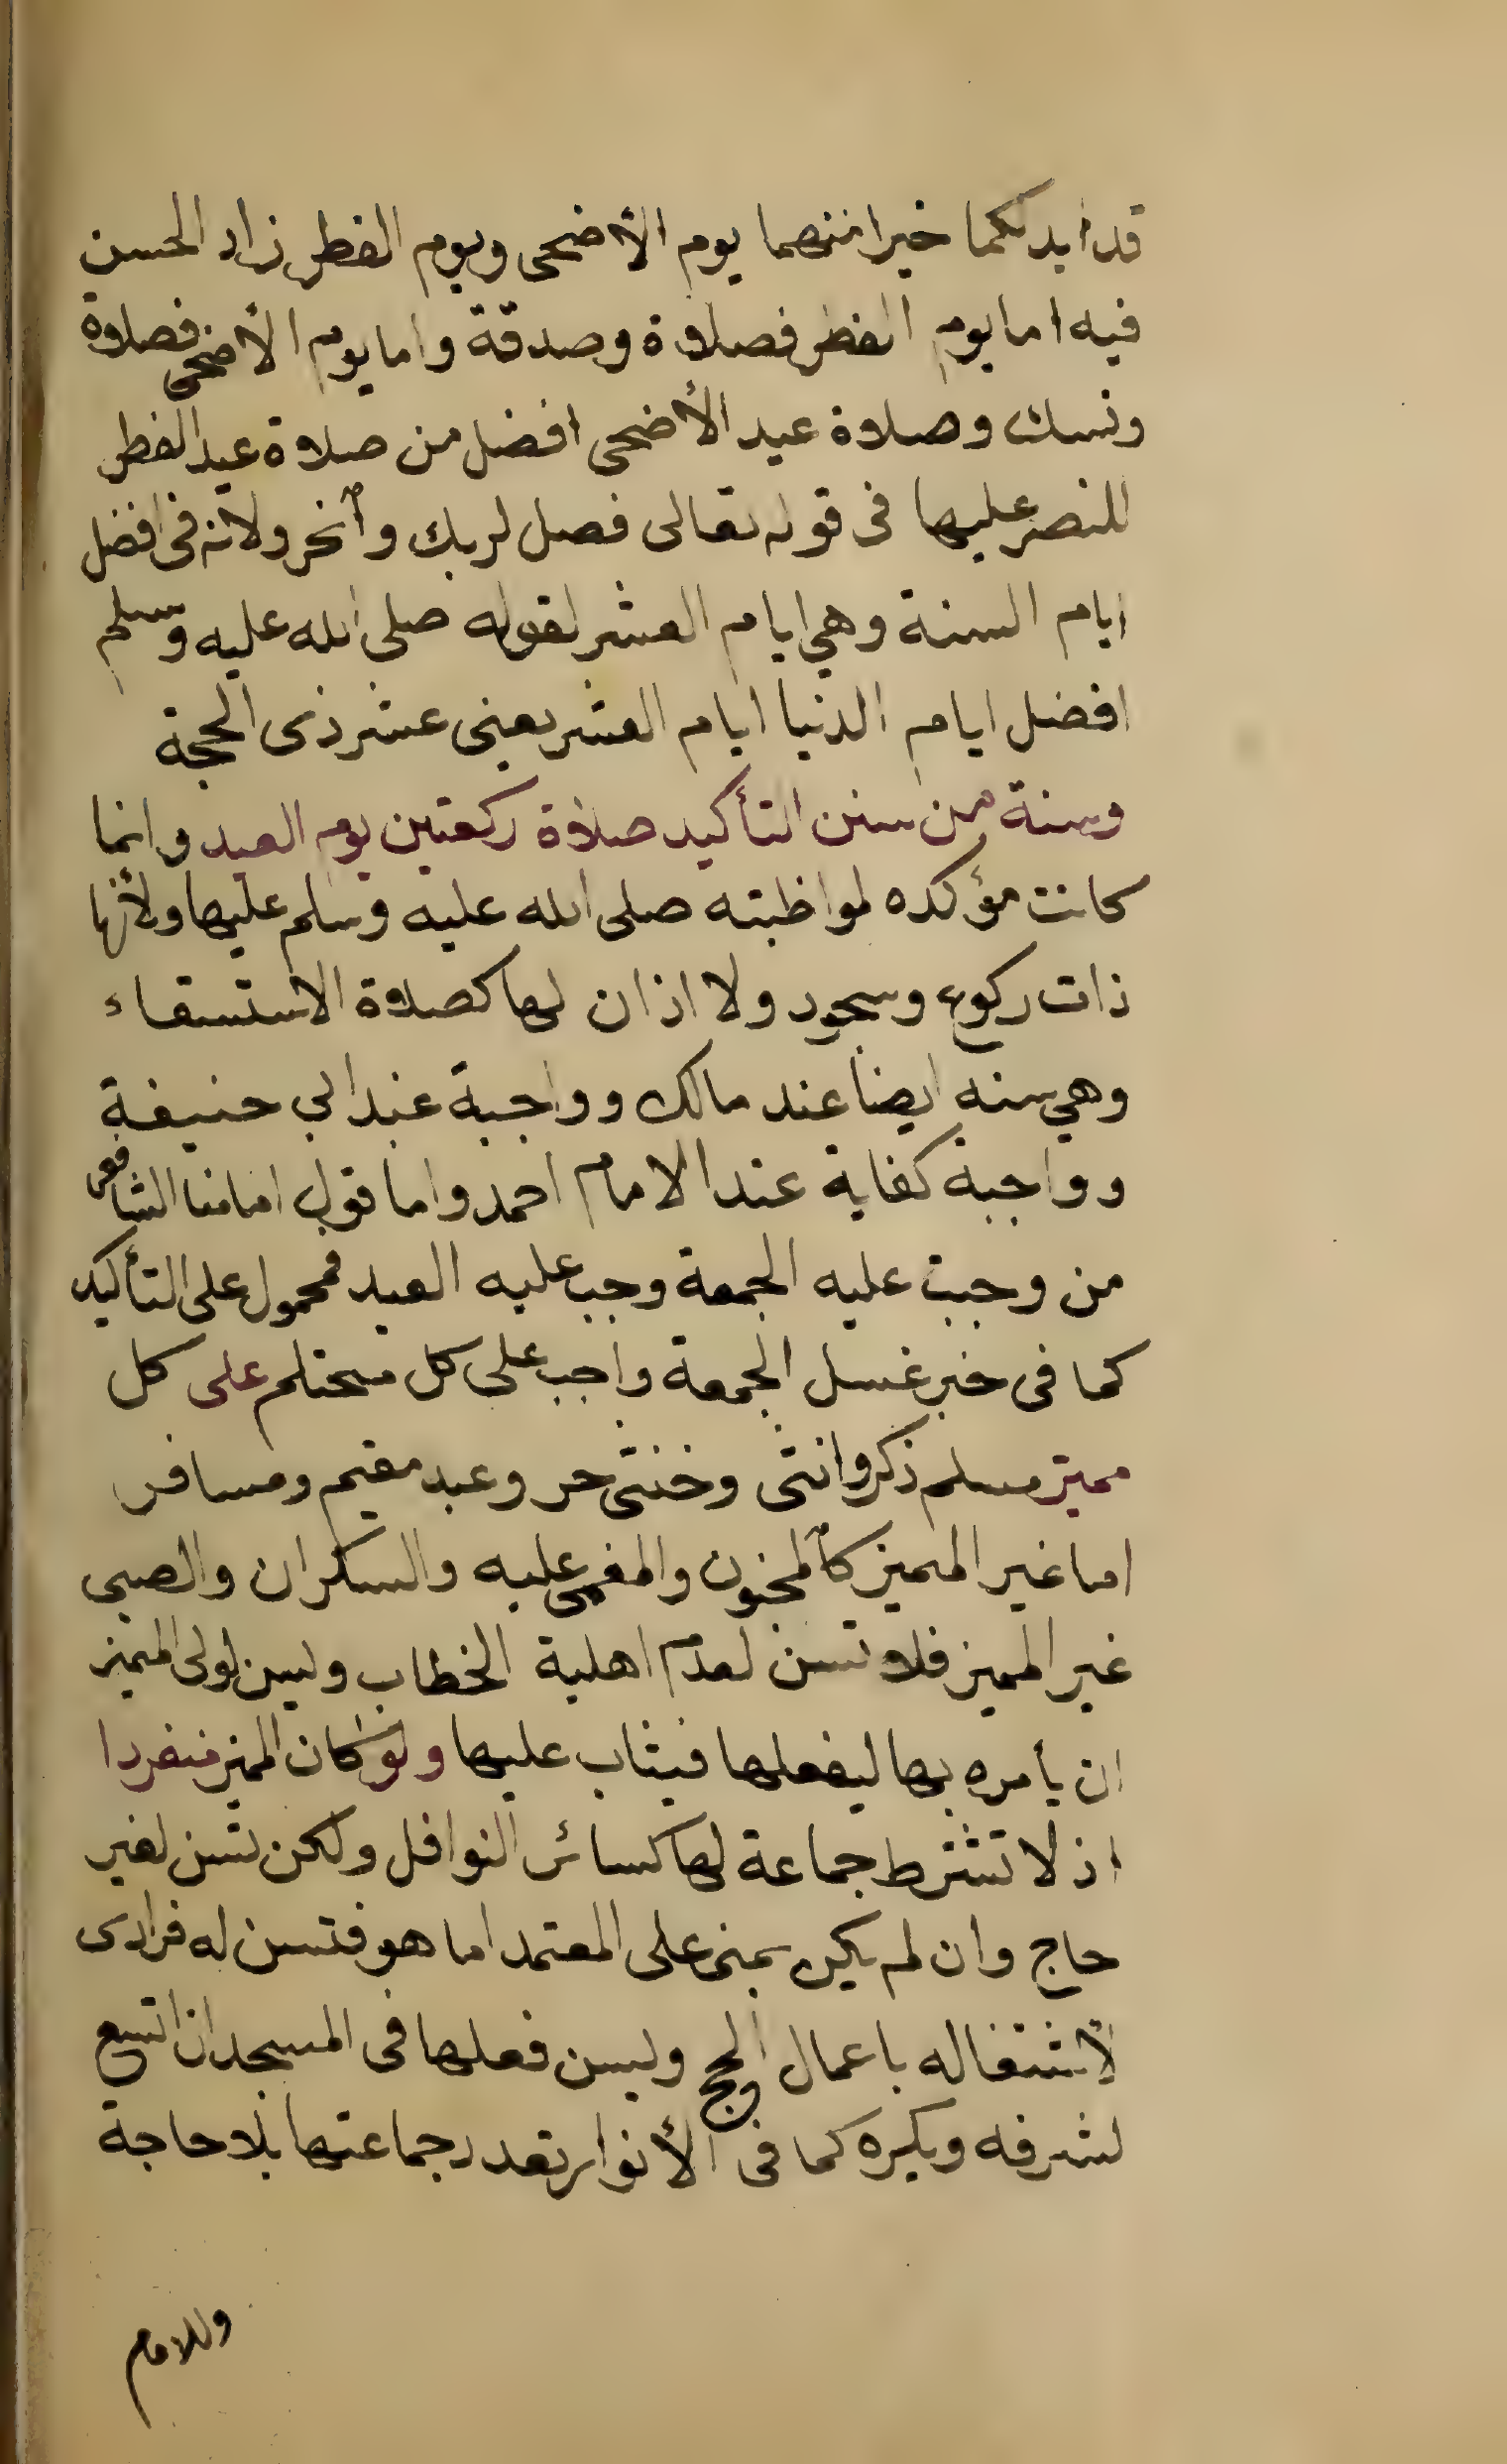 قد ابدلكما خيرا منهما يوم الأضحى ويوم الفطر زاد الحسن
فيه اما يوم الفطر فصلاة وصدقة واما يوم الأضحى فصلاة
ونسك وصلاة عيد الأضحى افضل من صلاة عيد الفطر
للنص عليها فى قوله تعالى فصل لربك وأنحر ولانه فى افضل
ايام السنة وهي ايام العشر لقوله صلى الله عليه وسلم
افضل ايام الدنيا ايام العشر يعنى عشر ذى الحجة
وسنة من سنن التأكيد صلاة ركعتين يوم العيد وانما
كانت مؤكده لمواظبته صلى الله عليه وسلم عليها ولأنها
ذات ركوع وسجود ولا اذان لها كصلاة الاستسقاء
وهي سنه ايضا عند مالك وواجبة عند ابي حنيفة
وواجبة كفاية عند الامام احمد واما قول امامنا الشافعى
من وجبت عليه الجمعة وجب عليه العيد فمحمول على التأكيد
كما فى خبر غسل الجمعة واجب على كل محتلم على كل
مميز مسلم ذكر وانثى وخنثى حر وعبد مقيم ومسافر
اما غير المميز كالمجنون والمغمى عليه والسكران والصبى
غير المميز فلا تسن لعدم اهلية الخطاب ويسن لولى المميز
ان يأمره بها ليفعلها فيثاب عليها ولو كان المميز منفردا
اذ لا تشترط جماعة لها كسائر النوافل ولكن تسن لغير
حاج وان لم يكن بمنى على المعتمد اما هو فتسن له فرادى
لاشتغاله باعمال الحج ويسن فعلها فى المسجد ان اتسع
لشرفه ويكره كما فى الأنوار تعدد جماعتها بلا حاجة
وللامام